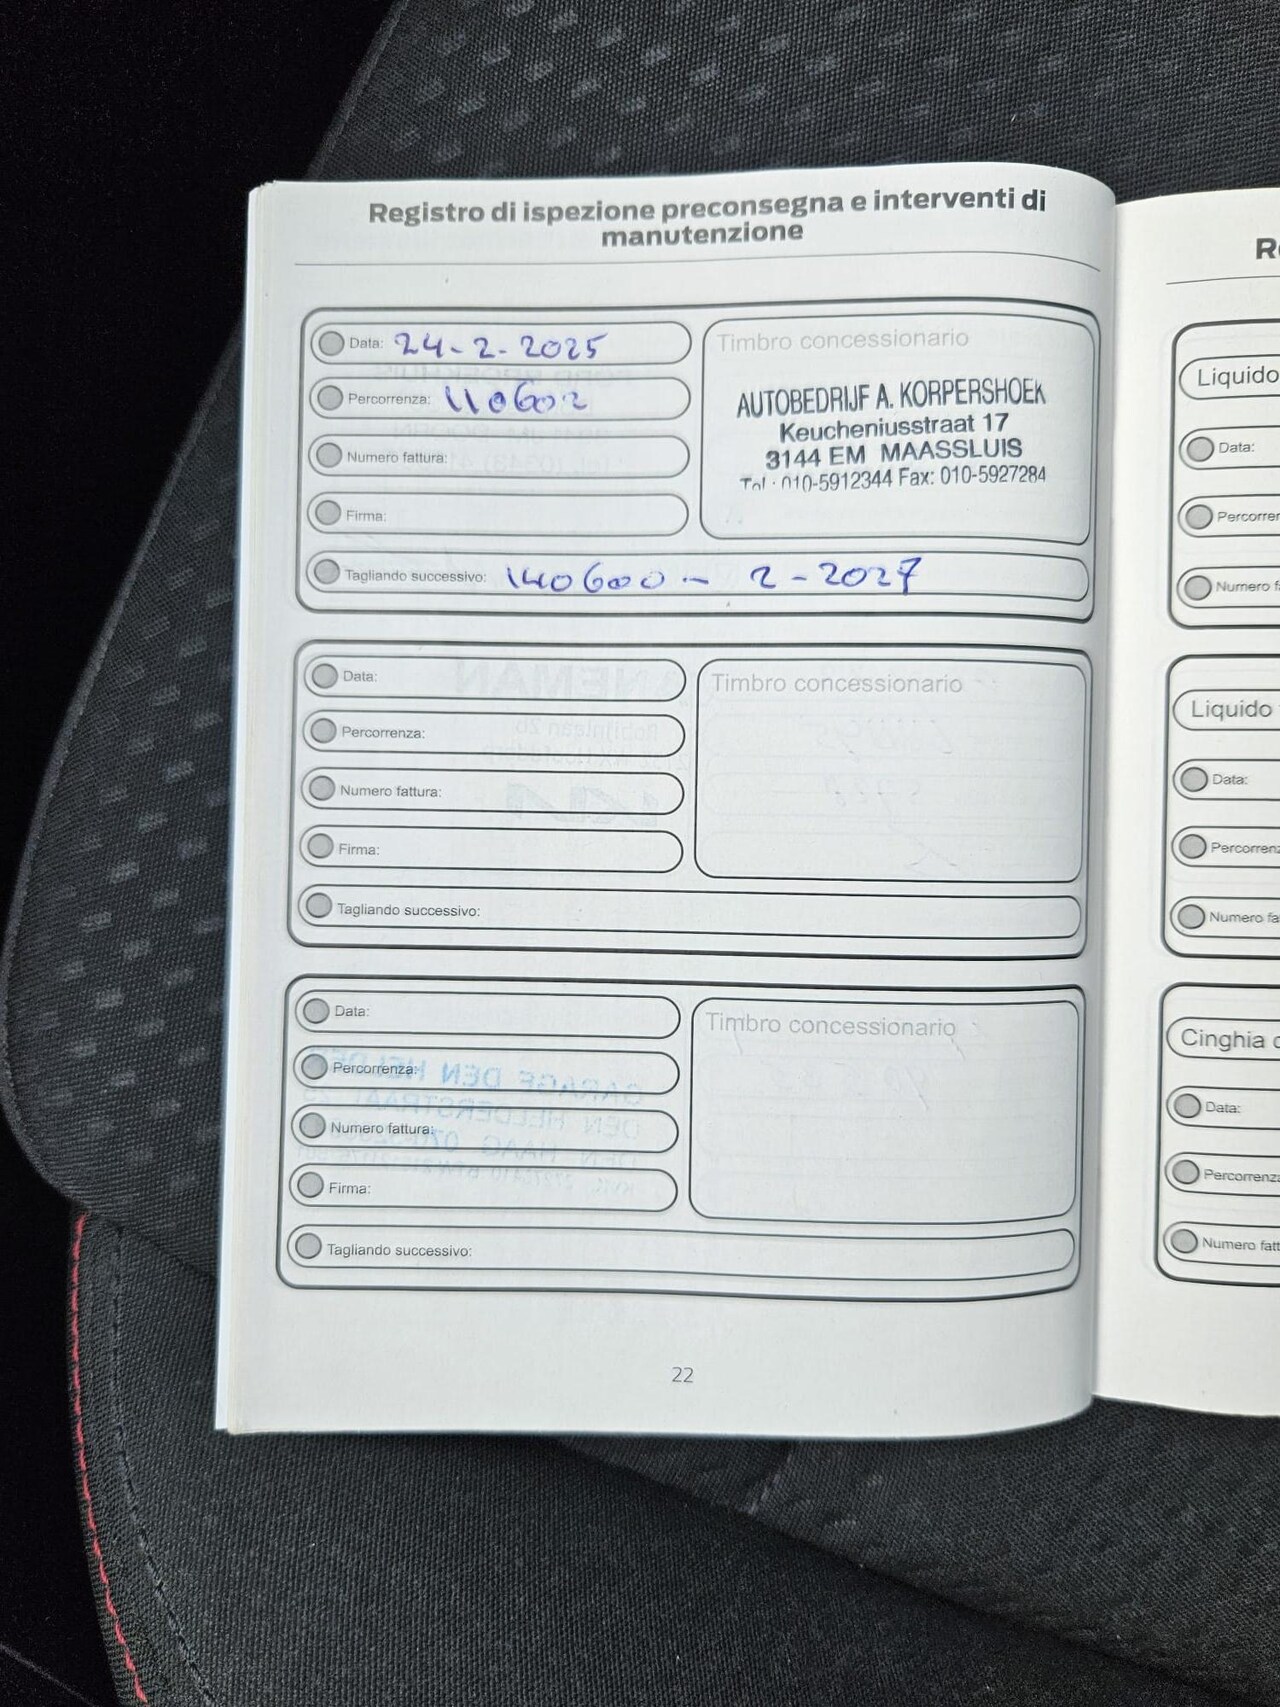 Registro di ispezione preconsegna e interventi di
manutenzione
Data: 24-2-2025
Percorrenza: 110602
Numero fattura:
Firma:
Timbro concessionario
AUTOBEDRIJF A. KORPERSHOEK
Keucheniusstraat 17
3144 EM MAASSLUIS
Tel.: 010-5912344 Fax: 010-5927284
Tagliando successivo: 140600 - 2-2027
Data:
Percorrenza:
Numero fattura:
Firma:
Timbro concessionario
Tagliando successivo:
Data:
Percorrenza:
Numero fattura:
Firma:
Timbro concessionario
Tagliando successivo:
22
Liquido
Data:
Numero
Liquido
Data:
Numero
Cinghia
Data:
Numero